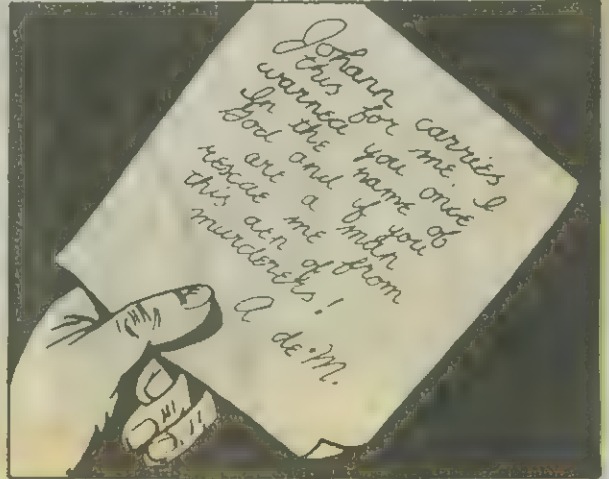 Johann carries
this for me. I
warned you once
In the name of
God and if you
are a man
rescue me from
this den of
murderers!
A de M.